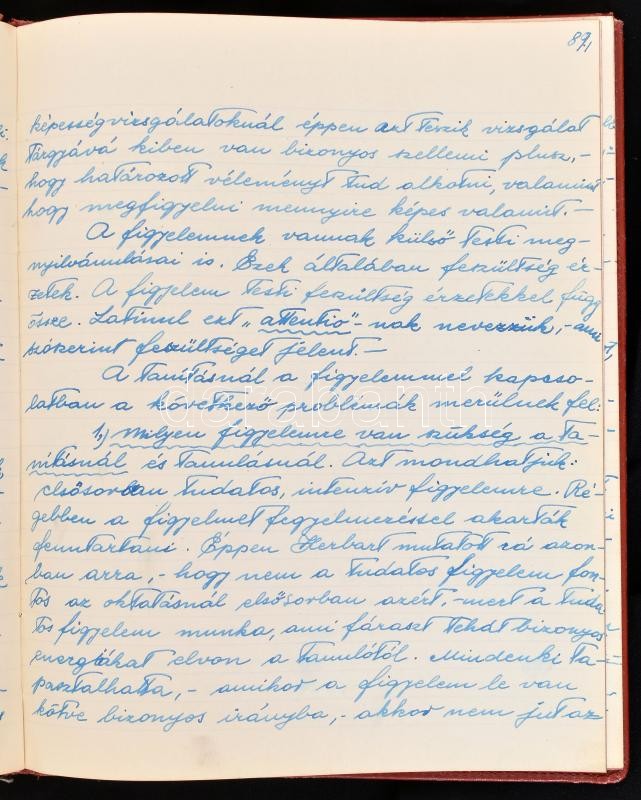 89,
képességvizsgálatoknál éppen azt teszik vizsgálat
tárgyává kiben van bizonyos szellemi plusz,-
hogy határozott véleményt tud alkotni, valamint
hogy megfigyelni mennyire képes valamit.-
A figyelemnek vannak külső testi meg-
nyilvánulásai is. Ezek általában feszültség ér-
zetek. A figyelem testi feszültség érzetekkel függ
össze. Latinul ezt "attentio"-nak nevezzük,- ami
szószerint feszültséget jelent.-
A tanításnál a figyelemmel kapcso-
latban a következő problémák merülnek fel:
1.) Milyen figyelemre van szükség a ta-
nításnál és tanulásnál. Azt mondhatjuk:
elsősorban tudatos, intenzív figyelemre. Ré-
gebben a figyelmet fegyelmezéssel akarták
fenntartani. Éppen Herbart mutatott rá azon-
ban arra,- hogy nem a tudatos figyelem fon-
tos az oktatásnál elsősorban azért,- mert a tuda-
tos figyelem munka, ami fáraszt tehát bizonyos
energiákat elvon a tanulótól. Mindenki ta-
pasztalhatta,- amikor a figyelem le van
kötve bizonyos irányba,- akkor nem jut az
darabanth